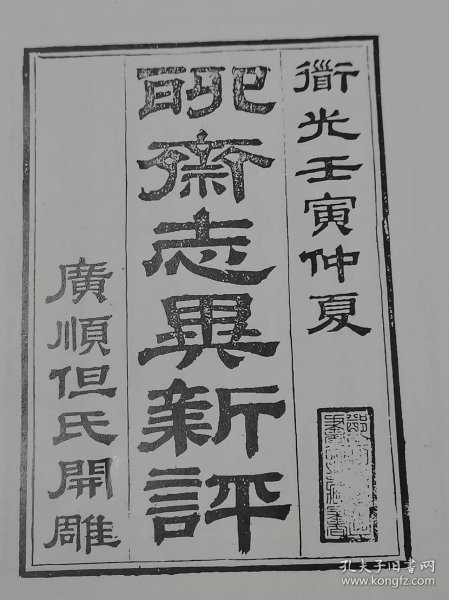 道光壬寅仲夏
聊齋志異新評
廣順但氏開雕
孔夫子旧书网
www.kongfz.com